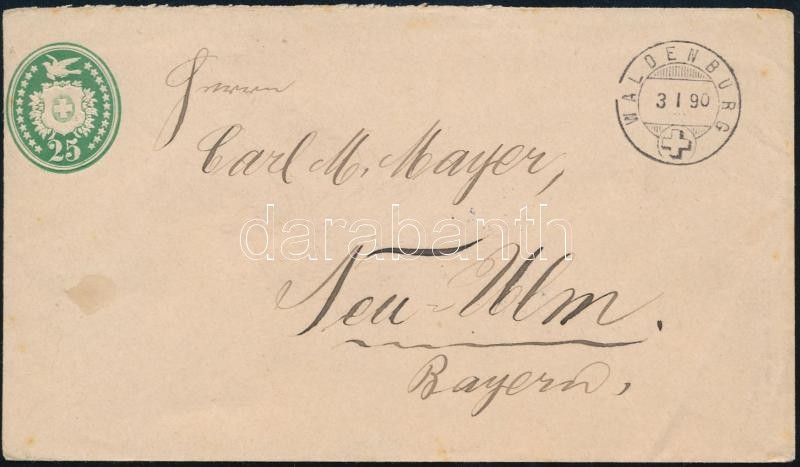 25
WALDENBURG
3 I 90
Herrn
Carl M. Mayer,
darabanth
Neu-Ulm.
Bayern,